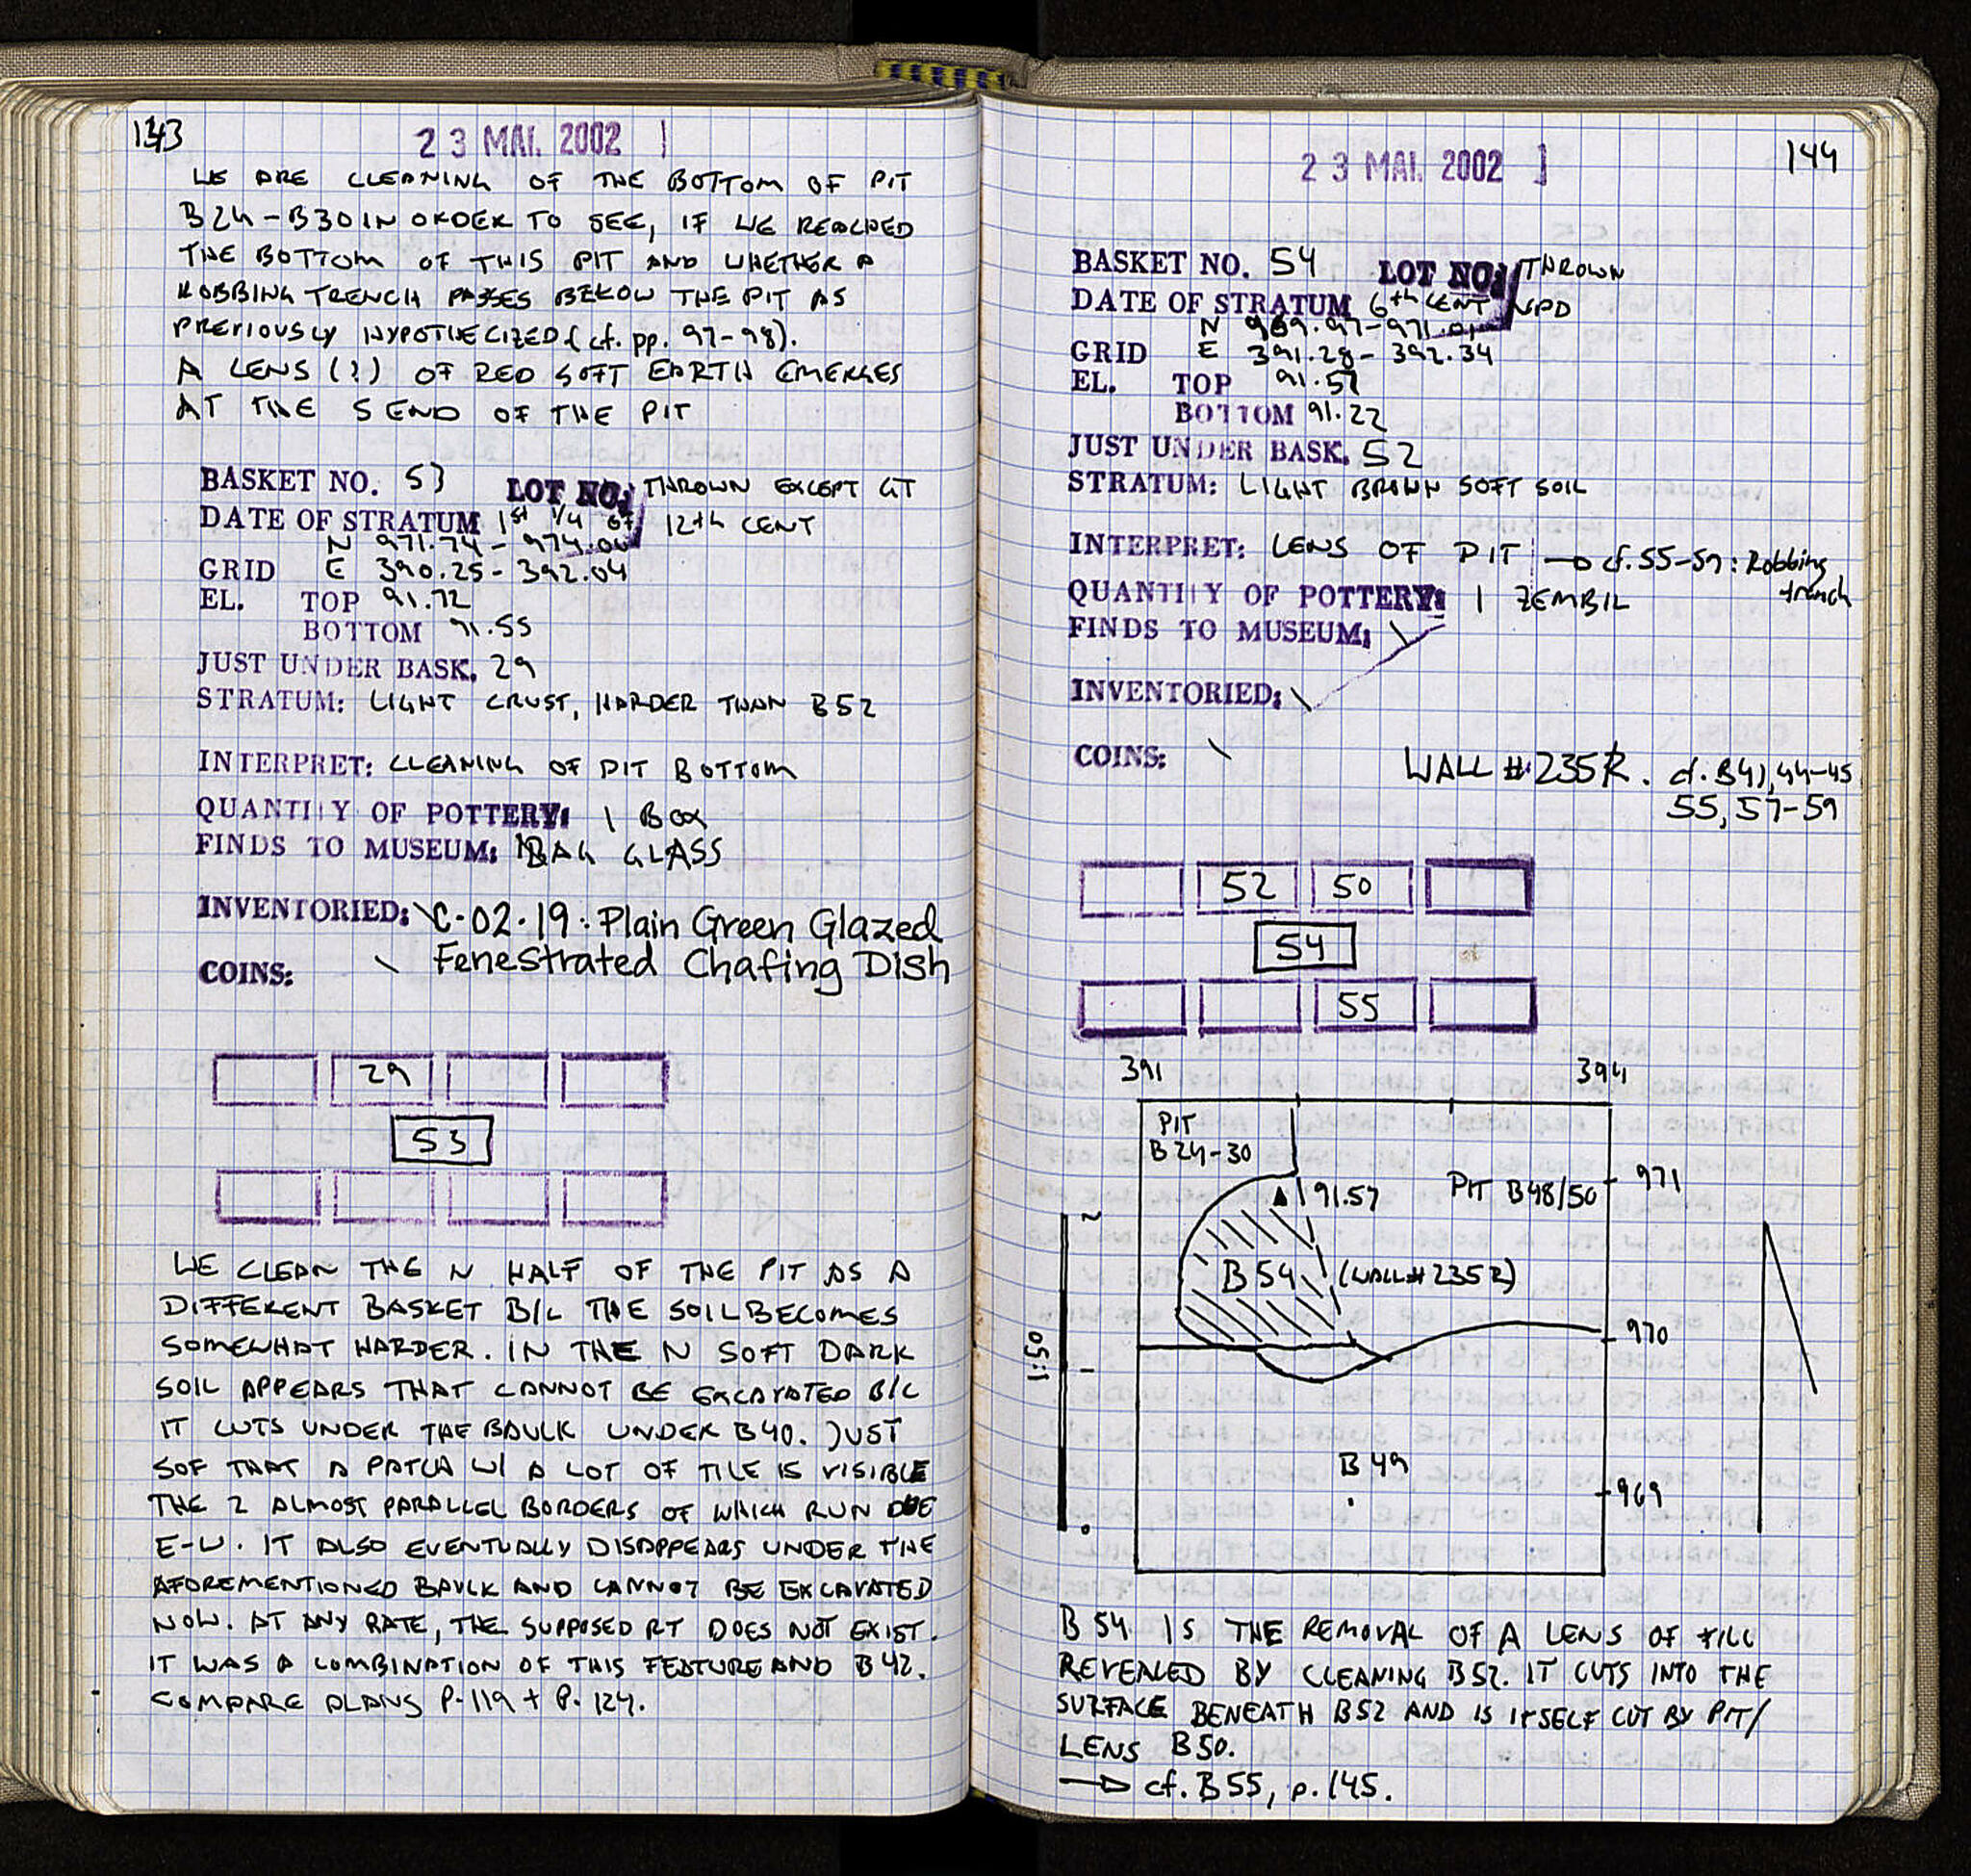 143
23 MAI 2002
WE ARE CLEANING OF THE BOTTOM OF PIT
B24-B30 IN ORDER TO SEE, IF WE REACHED
THE BOTTOM OF THIS PIT AND WHETHER A
ROBBING TRENCH PASSES BELOW THE PIT AS
PREVIOUSLY HYPOTHECIZED (cf. pp. 97-98).
A LENS (?) OF RED SOFT EARTH EMERGES
AT THE S END OF THE PIT
BASKET NO. 53 LOT NO: THROWN EXCEPT GT
DATE OF STRATUM 1st 1/4 OF 12th CENT
N 971.74-974.00
GRID E 390.25-392.04
EL. TOP 91.72
BOTTOM 91.55
JUST UNDER BASK. 29
STRATUM: LIGHT CRUST, HARDER THAN B52
INTERPRET: CLEANING OF PIT BOTTOM
QUANTITY OF POTTERY: 1 BOX
FINDS TO MUSEUM: 1 BAG GLASS
INVENTORIED: \ C-02-19: Plain Green Glazed
Fenestrated Chafing Dish
COINS: \
29
53
WE CLEAN THE N HALF OF THE PIT AS A
DIFFERENT BASKET B/C THE SOIL BECOMES
SOMEWHAT HARDER. IN THE N SOFT DARK
SOIL APPEARS THAT CANNOT BE EXCAVATED B/C
IT CUTS UNDER THE BAULK UNDER B40. JUST
S OF THAT A PATCH W/ A LOT OF TILE IS VISIBLE
THE 2 ALMOST PARALLEL BORDERS OF WHICH RUN DUE
E-W. IT ALSO EVENTUALLY DISAPPEARS UNDER THE
AFOREMENTIONED BAULK AND CANNOT BE EXCAVATED
NOW. AT ANY RATE, THE SUPPOSED RT DOES NOT EXIST.
IT WAS A COMBINATION OF THIS FEATURE AND B42.
COMPARE PLANS P.119 + P. 124.
144
23 MAI 2002
BASKET NO. 54 LOT NO: THROWN
DATE OF STRATUM 6th CENT NPD
N 969.97-971.01
GRID E 391.28-392.34
EL. TOP 91.57
BOTTOM 91.22
JUST UNDER BASK. 52
STRATUM: LIGHT BROWN SOFT SOIL
INTERPRET: LENS OF PIT → cf. 55-59: Robbing
trench
QUANTITY OF POTTERY: 1 ZEMBIL
FINDS TO MUSEUM: \
INVENTORIED: \
COINS: \
WALL # 235R. cf. B41, 44-45
55, 57-59
52 50
54
55
391 394
PIT
B24-30
971
▲ 91.57
PIT B48/50
B54
(WALL # 235R)
970
B49
969
2
1
0
1:50
B 54 IS THE REMOVAL OF A LENS OF FILL
REVEALED BY CLEANING B52. IT CUTS INTO THE
SURFACE BENEATH B52 AND IS ITSELF CUT BY PIT/
LENS B50.
→ cf. B55, p.145.